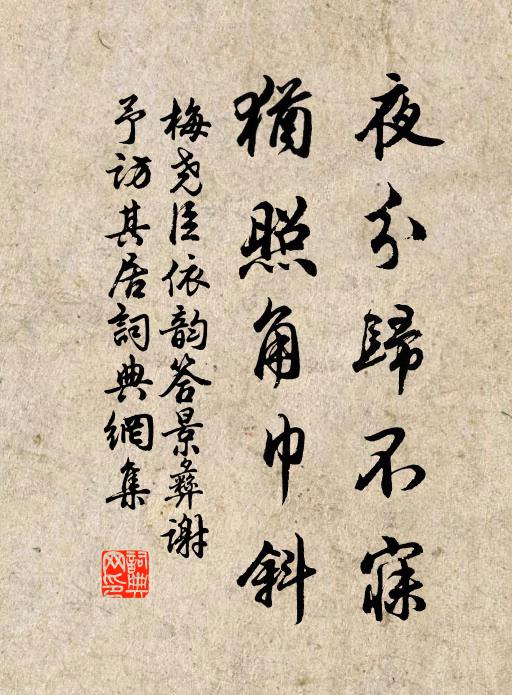 夜分歸不寐
猶照角巾斜
梅尧臣依韵答景彝謝
予訪其居詞典網集
詞典
网印